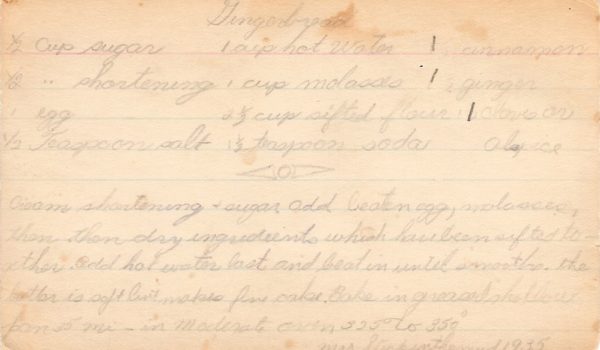 Gingerbread
½ Cup sugar 1 cup hot water 1 cinnamon
½ " shortening 1 cup molasses 1 ginger
1 egg 2½ cup sifted flour 1 cloves or
½ Teaspoon salt 1½ teaspoon soda
Cream shortening + sugar add beaten egg, molasses,
then then dry ingredients which have been sifted to-
gether add hot water last and beat in until smooth. the
batter is soft but makes fine cake. Bake in greased shallow
pan 35 mi - in moderate oven 325° to 350°
Mrs. 1935